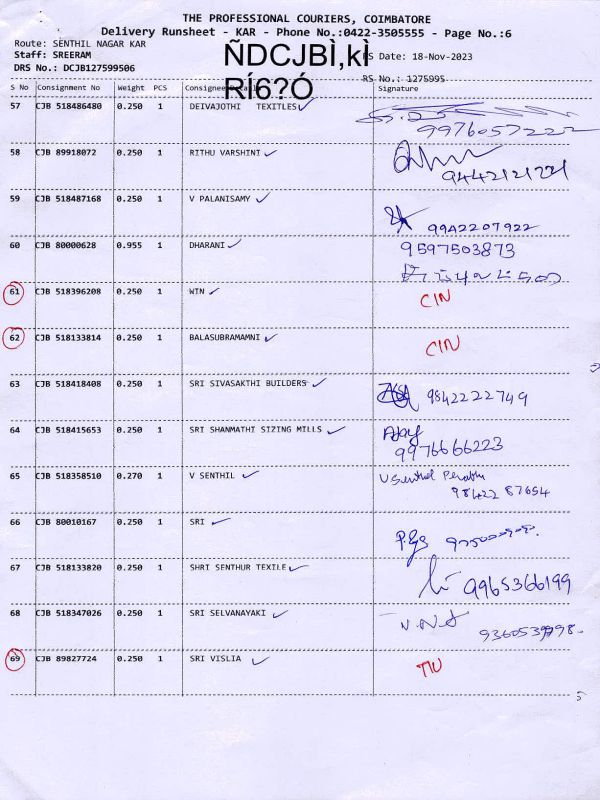 THE PROFESSIONAL COURIERS, COIMBATORE
Delivery Runsheet - KAR - Phone No.:0422-3505555 - Page No.:6
Route: SENTHIL NAGAR KAR
Staff: SREERAM
DRS No.: DCJB127599506
ÑDCJBÌ,kÌ
RÍ6?Ó
RS Date: 18-Nov-2023
RS No.: 1275995
S No Consignment No Weight PCS Consignee Signature
57 CJB 518486480 0.250 1 DEIVAJOTHI TEXITLES
9976057222
58 CJB 89918072 0.250 1 RITHU VARSHINI
59 CJB 518487168 0.250 1 V PALANISAMY
9942207922
60 CJB 80000628 0.955 1 DHARANI 9597503873
61 CJB 518396208 0.250 1 WIN CIN
62 CJB 518133814 0.250 1 BALASUBRAMAMNI CIN
63 CJB 518418408 0.250 1 SRI SIVASAKTHI BUILDERS 9842222749
64 CJB 518415653 0.250 1 SRI SHANMATHI SIZING MILLS Ajay
9976666223
65 CJB 518358510 0.270 1 V SENTHIL V Senthil Prabhu
98422 87654
66 CJB 80010167 0.250 1 SRI
67 CJB 518133820 0.250 1 SHRI SENTHUR TEXTILE 9965366199
68 CJB 518347026 0.250 1 SRI SELVANAYAKI V.N.S
69 CJB 89827724 0.250 1 SRI VISLIA TIU